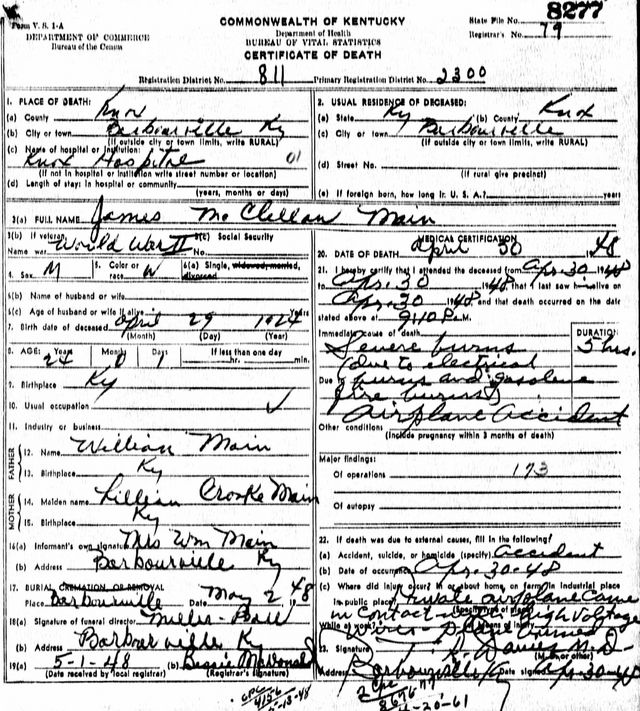 Form V. S. 1-A
DEPARTMENT OF COMMERCE
Bureau of the Census
COMMONWEALTH OF KENTUCKY
Department of Health
BUREAU OF VITAL STATISTICS
CERTIFICATE OF DEATH
State File No. 8277
Registrar's No. 79
Registration District No. 811 Primary Registration District No. 2300
1. PLACE OF DEATH:
(a) County Knox
(b) City or town Barbourville Ky
(If outside city or town limits, write RURAL)
(c) Name of hospital or institution:
Knox Hospital 01
(If not in hospital or institution write street number or location)
(d) Length of stay: in hospital or community
(years, months or days)
2. USUAL RESIDENCE OF DECEASED:
(a) State Ky (b) County Knox
(c) City or town Barbourville
(If outside city or town limits, write RURAL)
(d) Street No.
(If rural give precinct)
(e) If foreign born, how long in U. S. A.? years
3(a) FULL NAME James McClellan Main
3(b) If veteran, Name war World War II 3(c) Social Security No.
4. Sex M 5. Color or race W 6(a) Single, widowed, married, divorced
6(b) Name of husband or wife
6(c) Age of husband or wife if alive Years
7. Birth date of deceased April 29 1924
(Month) (Day) (Year)
8. AGE: Years 24 Months 0 Days 1 If less than one day hr. min.
9. Birthplace Ky
10. Usual occupation
11. Industry or business
FATHER
12. Name William Main
13. Birthplace Ky
MOTHER
14. Maiden name Lillian Crooke Main
15. Birthplace Ky
16(a) Informant's own signature Mrs Wm Main
(b) Address Barbourville Ky
17. BURIAL, CREMATION OR REMOVAL
Place Barbourville Date May 2 1948
18(a) Signature of funeral director
(b) Address Barbourville Ky
19(a) 5-1-48 (b) Bessie McDonald
(Date received by local registrar) (Registrar's signature)
MEDICAL CERTIFICATION
20. DATE OF DEATH April 30 1948
21. I hereby certify that I attended the deceased from Apr. 30 1948
to Apr. 30 1948, that I last saw him alive on
Apr. 30 1948 and that death occurred on the date
stated above at 9:10 P. M.
Immediate cause of death DURATION
Severe burns 5 hrs.
(due to electrical
Due to burns and gasolene
fire burns)
Airplane Accident
Other conditions
(Include pregnancy within 3 months of death)
Major findings:
Of operations 173
Of autopsy
22. If death was due to external causes, fill in the following?
(a) Accident, suicide, or homicide (specify) Accident
(b) Date of occurrence Apr. 30-48
(c) Where did injury occur? In or about home, on farm, in industrial place
in public place? Private airplane came
in contact with High Voltage
wires - Plane burned
23. Signature M.D.
(M. D. or other)
Barbourville Ky Date signed Apr-30-48